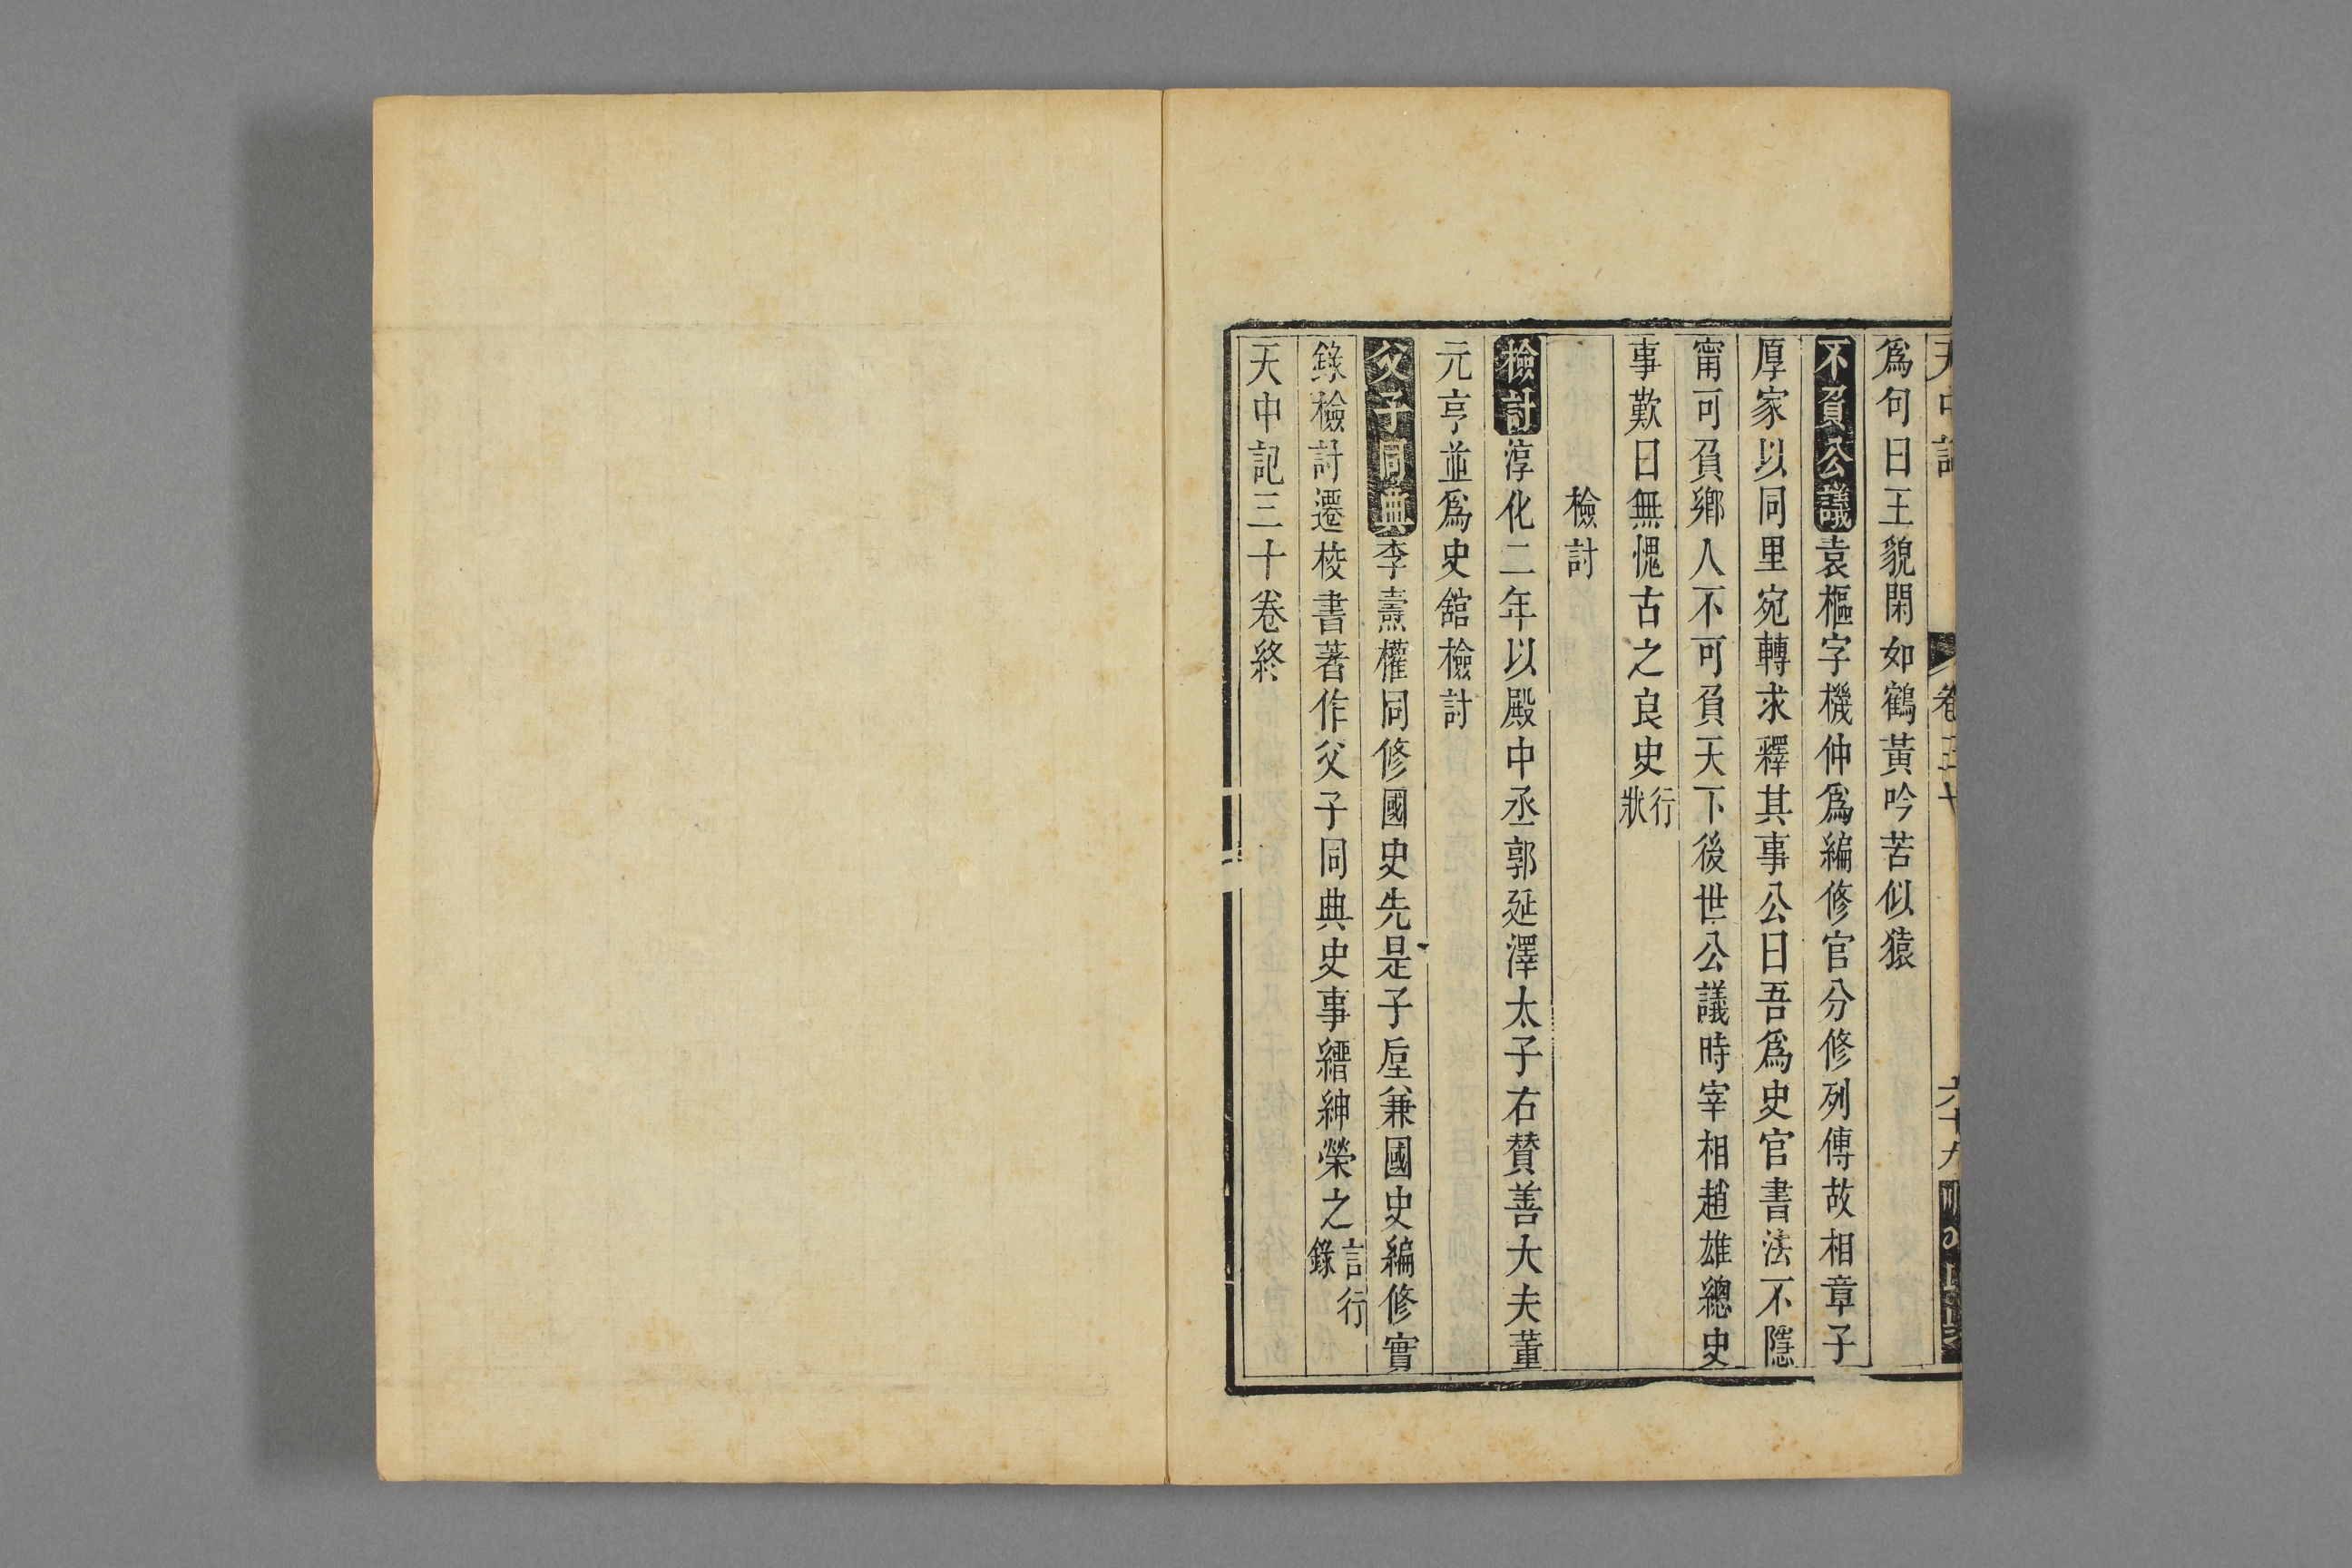 爲句曰王貌閑如鶴黃吟苦似猿
不負公議袁樞字機仲爲編修官分修列傳故相章子
厚家以同里宛轉求釋其事公曰吾爲史官書法不隱
甯可負鄉人不可負天下後世公議時宰相趙雄總史
事歎曰無愧古之良史行狀
檢討
檢討淳化二年以殿中丞郭延澤太子右贊善大夫董
元亨並爲史舘檢討
父子同典李燾權同修國史先是子垕兼國史編修實
錄檢討遷校書著作父子同典史事縉紳榮之言行錄
天中記三十卷終